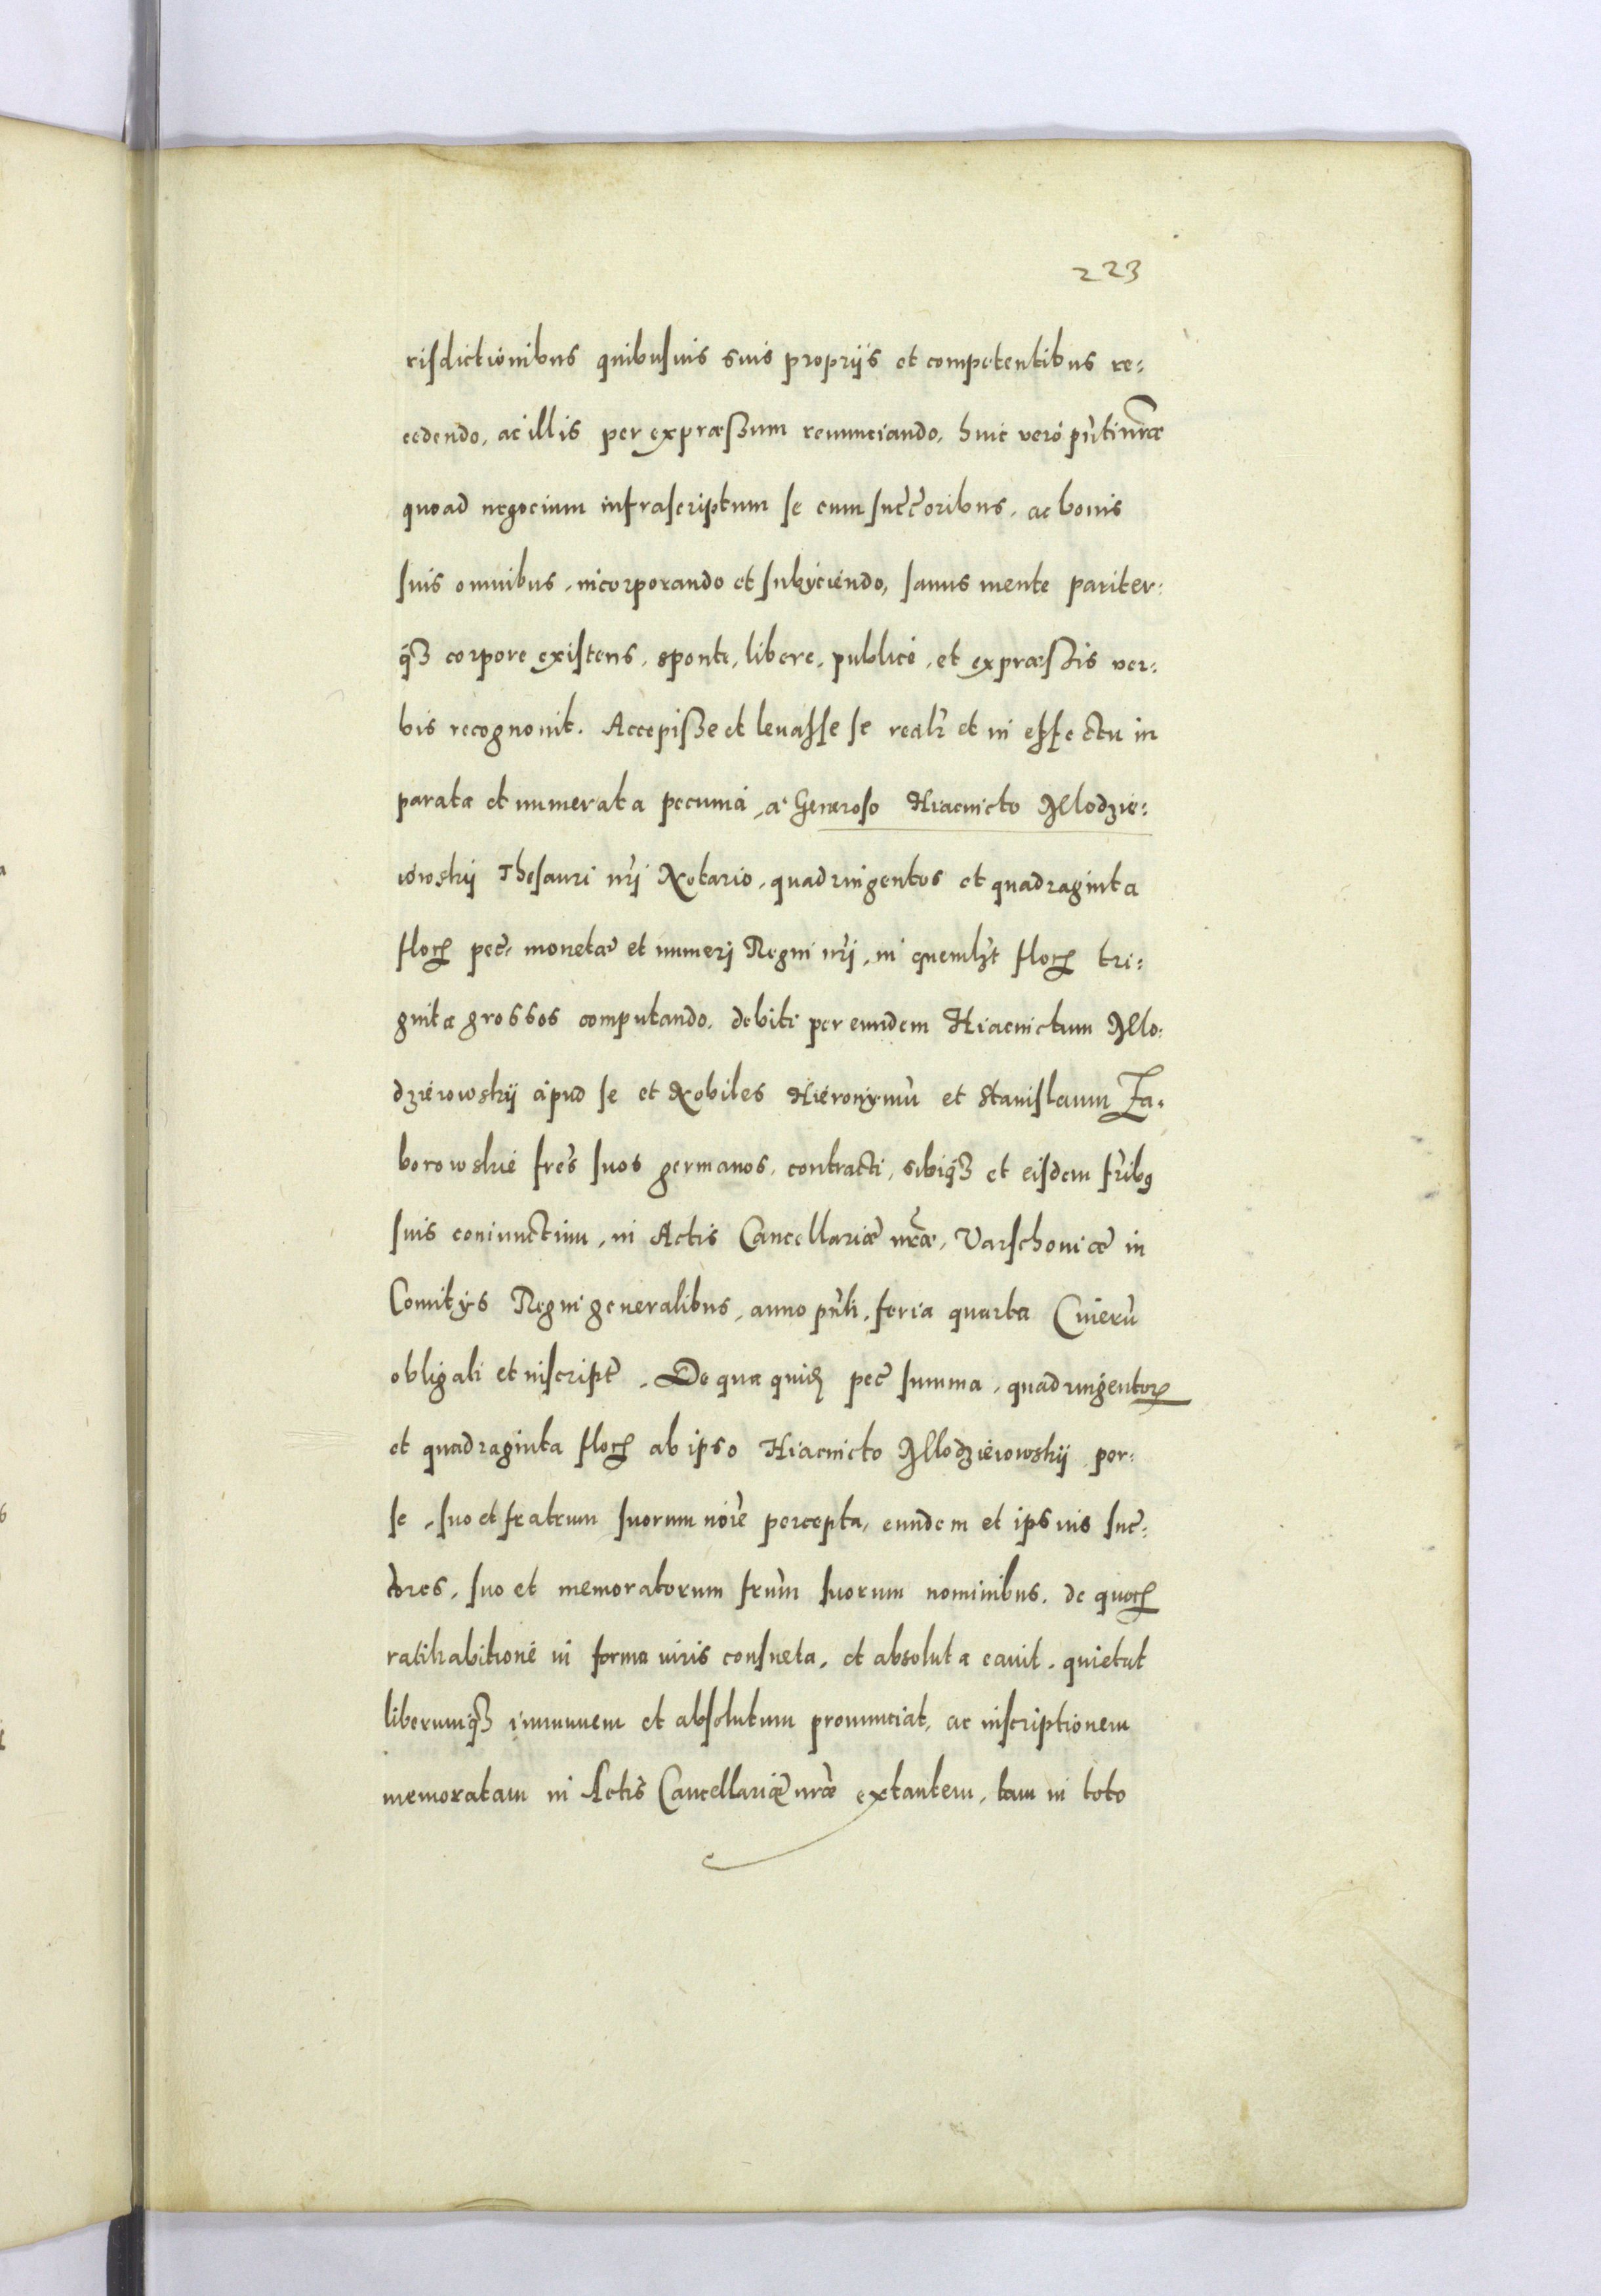 223
risdictionibus quibusuis suis proprijs et competentibus re:
cedendo, ac illis per expræssum renunciando, huic verò pñti nrãe
quoad negocium infrascriptum se cum succ̃oribus, ac bonis
suis omnibus, incorporando et subijciendo, sanus mente pariter:
q₃ corpore existens, sponte, libere, publicè, et expræssis ver:
bis recognouit. Accepisse et leuasse se realr̃ et in effectu in
parata et numerata pecunia, à Generoso Hiacincto Mlodzie:
iowskij Thesauri nrĩ Notario, quadringentos et quadraginta
floꝝ pec̃. monetæ et numeri Regni nrĩ, in quemlꝫt floꝝ tri:
ginta grossos computando, debiti per eundem Hiacinctum Mlo:
dzieiowskij apud se et Nobiles Hieronymũ et Stanislaum Za:
borowskie frẽs suos germanos, contracti, sibiq₃ et eisdem frĩbꝯ
suis coniunctim, in Actis Cancellariæ nrãe, Varschouiæ in
Comitijs Regni generalibus, anno pñti, feria quarta Cinerũ
obligati et inscript̃. De qua quidẽ pec̃ summa, quadringentoꝝ
et quadraginta floꝝ ab ipso Hiacincto Mlodzieiowskij per:
se, suo et fratrum suorum noĩe percepta, eundem et ipsius suc̃:
cores, suo et memoratorum frũm suorum nominibus, de quoꝝ
ratihabitione in forma iuris consueta, et absoluta cauit, quietat
liberumq₃ immunem et absolutum pronunciat, ac inscriptionem
memoratam in Actis Cancellariæ nrãe extantem, tam in toto